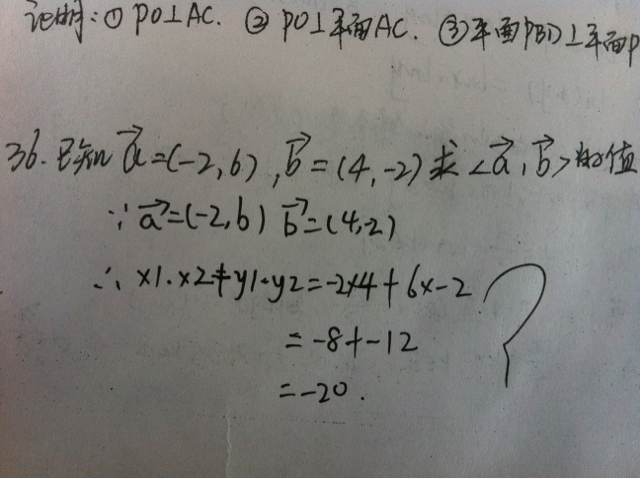 证明:① PO⊥AC. ② PO⊥平面AC. ③平面PBD⊥平面P
36. 已知 a⃗=(-2,6), b⃗=(4,-2)求<a⃗,b⃗>的值
∵ a⃗=(-2,6) b⃗=(4,-2)
∴ x1·x2+y1·y2=-2×4+6×-2
=-8+-12
=-20.
?